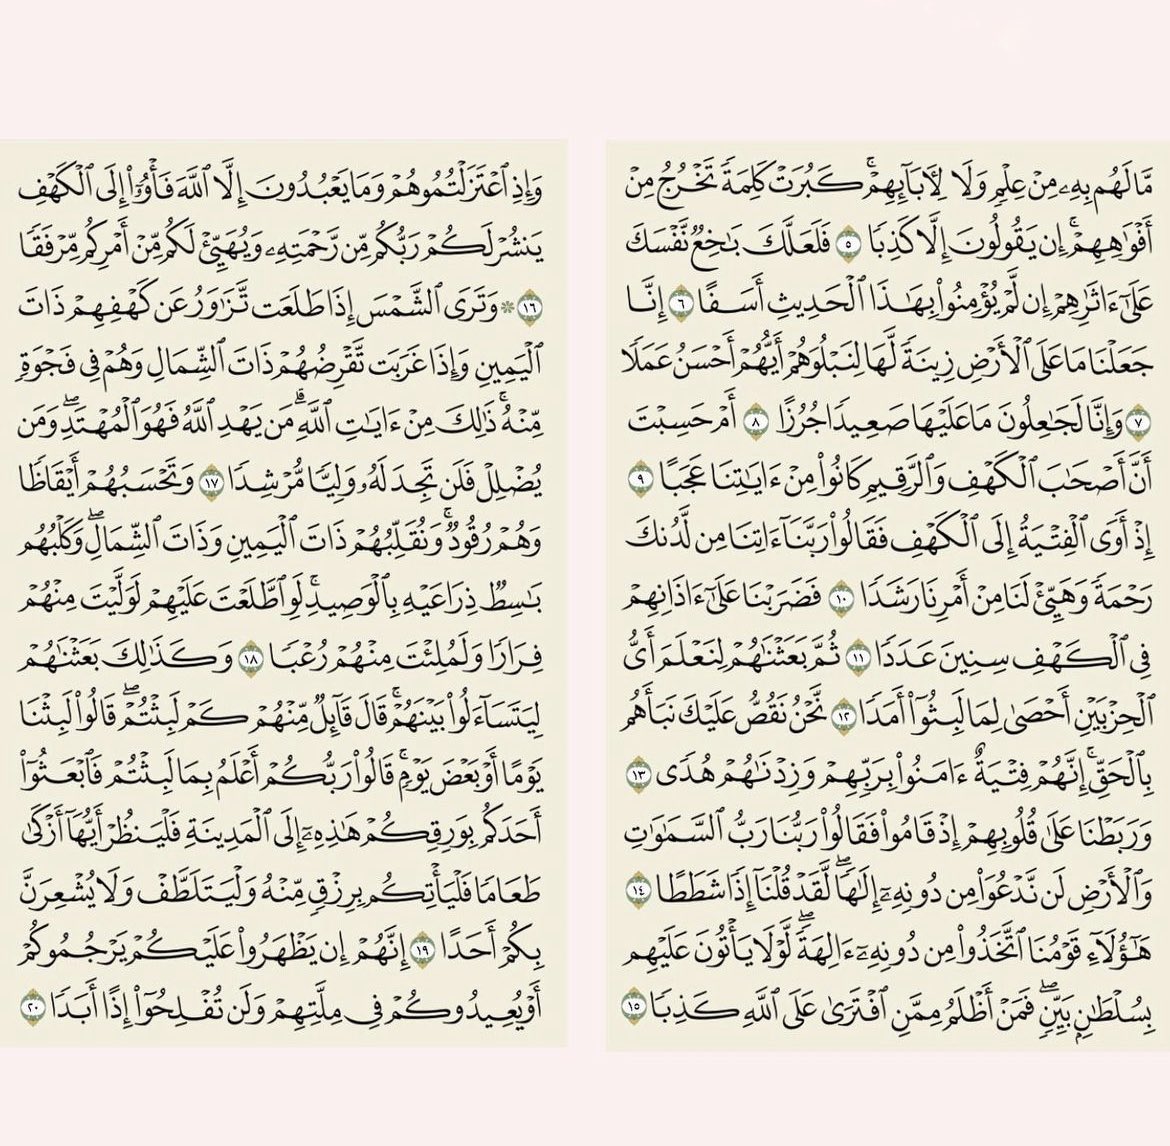 مَّا لَهُم بِهِۦ مِنْ عِلْمٍۢ وَلَا لِأٓبَآئِهِمْ ۚ كَبُرَتْ كَلِمَةًۭ تَخْرُجُ مِنْ
أَفْوَٰهِهِمْ ۚ إِن يَقُولُونَ إِلَّا كَذِبًۭا ٥ فَلَعَلَّكَ بَٰخِعٌۭ نَّفْسَكَ
عَلَىٰٓ ءَاثَٰرِهِمْ إِن لَّمْ يُؤْمِنُوا۟ بِهَٰذَا ٱلْحَدِيثِ أَسَفًا ٦ إِنَّا
جَعَلْنَا مَا عَلَى ٱلْأَرْضِ زِينَةًۭ لَّهَا لِنَبْلُوَهُمْ أَيُّهُمْ أَحْسَنُ عَمَلًۭا
٧ وَإِنَّا لَجَٰعِلُونَ مَا عَلَيْهَا صَعِيدًۭا جُرُزًا ٨ أَمْ حَسِبْتَ
أَنَّ أَصْحَٰبَ ٱلْكَهْفِ وَٱلرَّقِيمِ كَانُوا۟ مِنْ ءَايَٰتِنَا عَجَبًا ٩
إِذْ أَوَى ٱلْفِتْيَةُ إِلَى ٱلْكَهْفِ فَقَالُوا۟ رَبَّنَآ ءَاتِنَا مِن لَّدُنكَ
رَحْمَةًۭ وَهَيِّئْ لَنَا مِنْ أَمْرِنَا رَشَدًۭا ١٠ فَضَرَبْنَا عَلَىٰٓ ءَاذَانِهِمْ
فِى ٱلْكَهْفِ سِنِينَ عَدَدًۭا ١١ ثُمَّ بَعَثْنَٰهُمْ لِنَعْلَمَ أَىُّ
ٱلْحِزْبَيْنِ أَحْصَىٰ لِمَا لَبِثُوٓا۟ أَمَدًۭا ١٢ نَّحْنُ نَقُصُّ عَلَيْكَ نَبَأَهُم
بِٱلْحَقِّ ۚ إِنَّهُمْ فِتْيَةٌ ءَامَنُوا۟ بِرَبِّهِمْ وَزِدْنَٰهُمْ هُدًۭى ١٣
وَرَبَطْنَا عَلَىٰ قُلُوبِهِمْ إِذْ قَامُوا۟ فَقَالُوا۟ رَبُّنَا رَبُّ ٱلسَّمَٰوَٰتِ
وَٱلْأَرْضِ لَن نَّدْعُوَا۟ مِن دُونِهِۦٓ إِلَٰهًۭا ۖ لَّقَدْ قُلْنَآ إِذًۭا شَطَطًا ١٤
هَٰٓؤُلَآءِ قَوْمُنَا ٱتَّخَذُوا۟ مِن دُونِهِۦٓ ءَالِهَةًۭ ۖ لَّوْلَا يَأْتُونَ عَلَيْهِم
بِسُلْطَٰنٍۭ بَيِّنٍۢ ۖ فَمَنْ أَظْلَمُ مِمَّنِ ٱفْتَرَىٰ عَلَى ٱللَّهِ كَذِبًۭا ١٥
وَإِذِ ٱعْتَزَلْتُمُوهُمْ وَمَا يَعْبُدُونَ إِلَّا ٱللَّهَ فَأْوُۥٓا۟ إِلَى ٱلْكَهْفِ
يَنشُرْ لَكُمْ رَبُّكُم مِّن رَّحْمَتِهِۦ وَيُهَيِّئْ لَكُم مِّنْ أَمْرِكُم مِّرْفَقًۭا
١٦ ۞ وَتَرَى ٱلشَّمْسَ إِذَا طَلَعَت تَّزَٰوَرُ عَن كَهْفِهِمْ ذَاتَ
ٱلْيَمِينِ وَإِذَا غَرَبَت تَّقْرِضُهُمْ ذَاتَ ٱلشِّمَالِ وَهُمْ فِى فَجْوَةٍۢ
مِّنْهُ ۚ ذَٰلِكَ مِنْ ءَايَٰتِ ٱللَّهِ ۗ مَن يَهْدِ ٱللَّهُ فَهُوَ ٱلْمُهْتَدِ ۖ وَمَن
يُضْلِلْ فَلَن تَجِدَ لَهُۥ وَلِيًّۭا مُّرْشِدًۭا ١٧ وَتَحْسَبُهُمْ أَيْقَاظًۭا
وَهُمْ رُقُودٌۭ ۚ وَنُقَلِّبُهُمْ ذَاتَ ٱلْيَمِينِ وَذَاتَ ٱلشِّمَالِ ۖ وَكَلْبُهُم
بَٰسِطٌۭ ذِرَاعَيْهِ بِٱلْوَصِيدِ ۚ لَوِ ٱطَّلَعْتَ عَلَيْهِمْ لَوَلَّيْتَ مِنْهُمْ
فِرَارًۭا وَلَمُلِئْتَ مِنْهُمْ رُعْبًۭا ١٨ وَكَذَٰلِكَ بَعَثْنَٰهُمْ
لِيَتَسَآءَلُوا۟ بَيْنَهُمْ ۚ قَالَ قَآئِلٌۭ مِّنْهُمْ كَمْ لَبِثْتُمْ ۖ قَالُوا۟ لَبِثْنَا
يَوْمًا أَوْ بَعْضَ يَوْمٍۢ ۚ قَالُوا۟ رَبُّكُمْ أَعْلَمُ بِمَا لَبِثْتُمْ فَٱبْعَثُوٓا۟
أَحَدَكُم بِوَرِقِكُمْ هَٰذِهِۦٓ إِلَى ٱلْمَدِينَةِ فَلْيَنظُرْ أَيُّهَآ أَزْكَىٰ
طَعَامًۭا فَلْيَأْتِكُم بِرِزْقٍۢ مِّنْهُ وَلْيَتَلَطَّفْ وَلَا يُشْعِرَنَّ
بِكُمْ أَحَدًا ١٩ إِنَّهُمْ إِن يَظْهَرُوا۟ عَلَيْكُمْ يَرْجُمُوكُمْ
أَوْ يُعِيدُوكُمْ فِى مِلَّتِهِمْ وَلَن تُفْلِحُوٓا۟ إِذًا أَبَدًۭا ٢٠